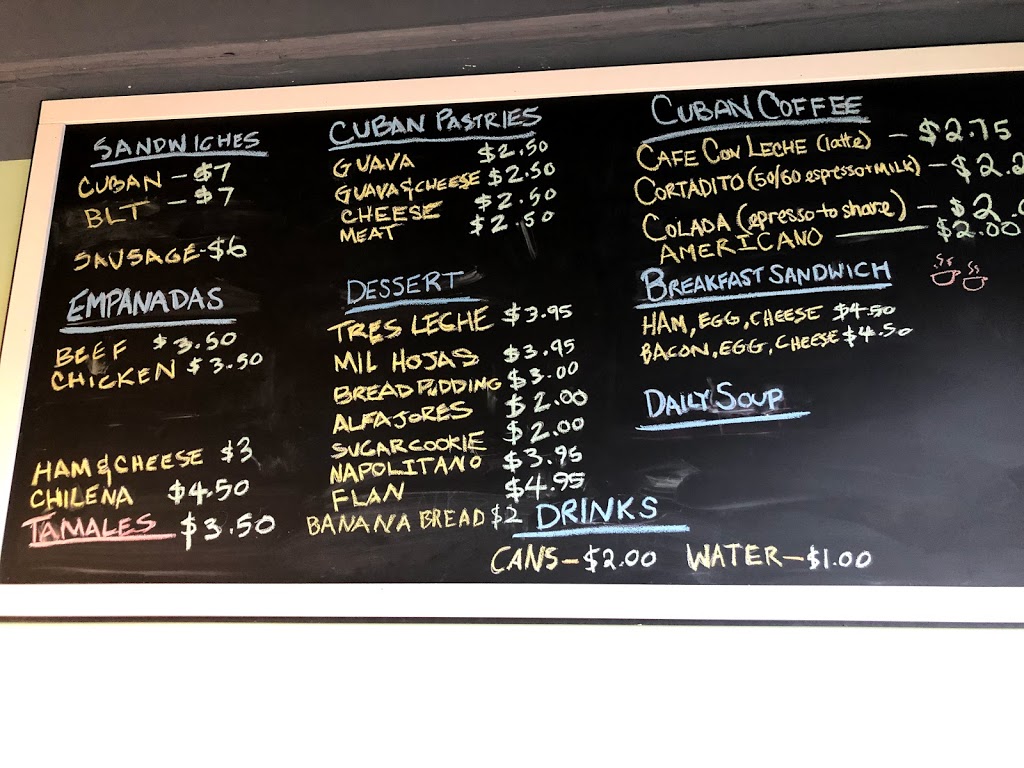 SANDWICHES
CUBAN - $7
BLT - $7
SAUSAGE - $6
EMPANADAS
BEEF $3.50
CHICKEN $3.50
HAM & CHEESE $3
CHILENA $4.50
TAMALES $3.50
CUBAN PASTRIES
GUAVA $2.50
GUAVA & CHEESE $2.50
CHEESE $2.50
MEAT $2.50
DESSERT
TRES LECHE $3.95
MIL HOJAS $3.95
BREAD PUDDING $3.00
ALFAJORES $2.00
SUGAR COOKIE $2.00
NAPOLITANO $3.95
FLAN $4.95
BANANA BREAD $2
CUBAN COFFEE
CAFE CON LECHE (latte) - $2.75
CORTADITO (50/60 espresso+MILK) -
COLADA (epresso to share) -
AMERICANO — $2.00
BREAKFAST SANDWICH
HAM, EGG, CHEESE $4.50
BACON, EGG, CHEESE $4.50
DAILY SOUP
DRINKS
CANS - $2.00 WATER - $1.00